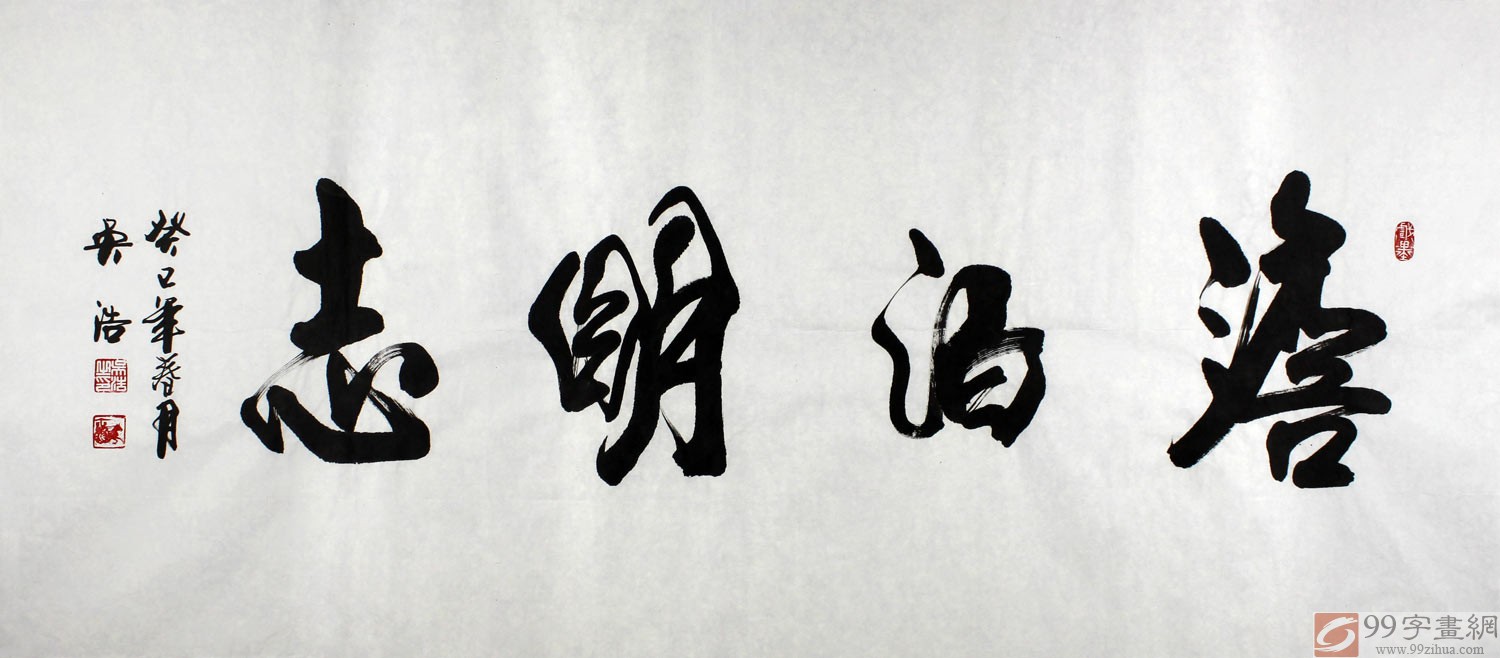 澹泊明志
癸巳年春月
吴浩
吴浩之印
99字畫網
www.99zihua.com